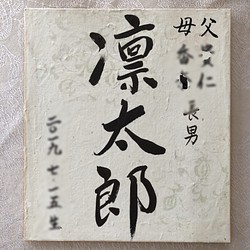 父 仁
母
長男
凛太郎
二〇一九 七・一五 生